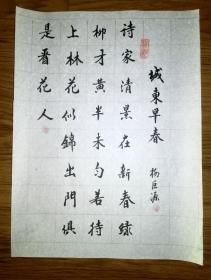 城東早春
楊巨源
詩家清景在新春綠
柳才黃半未勻若待
上林花似錦出門俱
是看花人